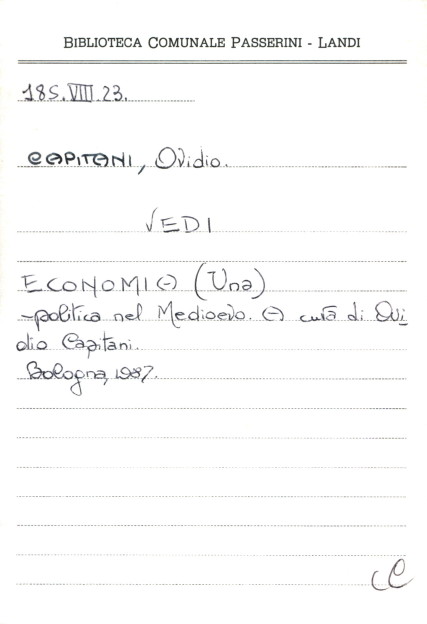 BIBLIOTECA COMUNALE PASSERINI - LANDI
185.VIII.23.
CAPITANI, Ovidio.
VEDI
ECONOMIA (Una)
-politica nel Medioevo. A cura di Ovi
dio Capitani.
Bologna, 1987.